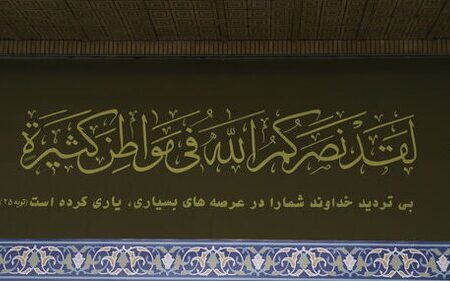 لَقَدْ نَصَرَكُمُ اللَّهُ فِي مَوَاطِنَ كَثِيرَةٍ
بی تردید خداوند شمارا در عرصه های بسیاری، یاری کرده است (توبه ۲۵)